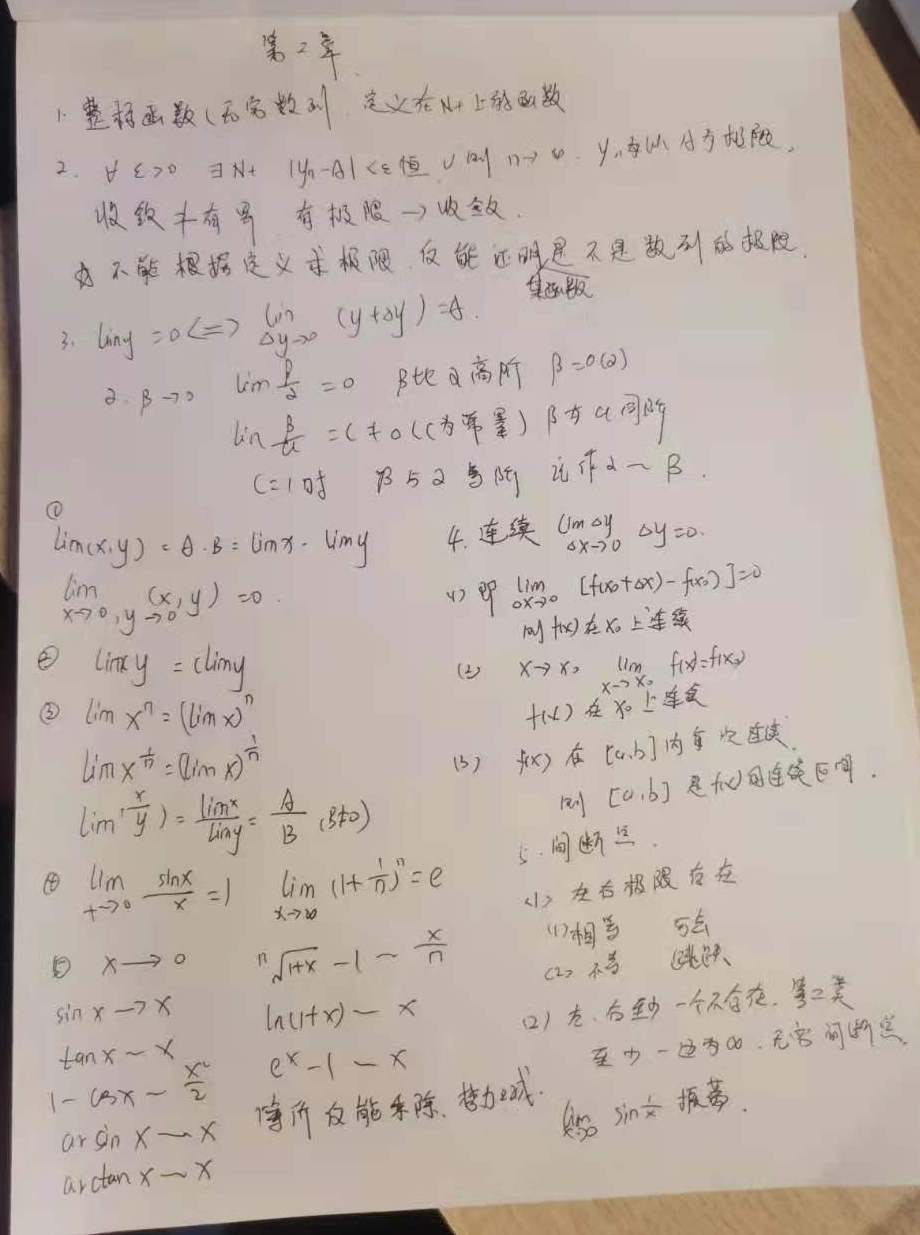 第2章
1. 整标函数(无穷数列 定义在N+上的函数
2. ∀ ε>0 ∃N+ |yn-A|<ε恒 则 n→∞. yn 以A为极限.
收敛 有界 有极限→收敛.
不能根据定义求极限.仅能证明是不是数列的极限.
函数
3. limy =0 <=> lim Δy→0 (y+Δy)=A.
α. β→0 lim β/α =0 β比α高阶 β=0(α)
lin β/α =C≠0 (C为常量) β与α同阶
C=1时 β与α等阶 记作α~β.
①
Lim(x,y) = A.B = limx · limy
lim x→0, y→0 (x,y) =0.
② linxcy = climy
③ lim xⁿ=(lim x)ⁿ
lim x^(1/n)=(lim x)^(1/n)
lim(x/y) = limx/limy = A/B (B≠0)
④ lim x→0 sinx/x =1 lim x→∞ (1+1/n)ⁿ=e
⑤ x→0 ⁿ√1+x -1 ~ x/n
sin x→x ln(1+x) ~ x
tan x ~ x eˣ-1 ~ x
1-cosx ~ x²/2
等阶仅能乘除.
arsin x ~ x
arctan x ~ x
4. 连续 lim Δy Δx→0 Δy=0.
(1) 即 lim Δx→0 [f(x0+Δx)-f(x0)]=0
则f(x)在x0上连续
(2) x→x0 lim x→x0 f(x)=f(x0)
f(x)在x0上连续
(3) f(x)在[a,b]内每点连续.
则[a,b]是f(x)的连续区间.
5. 间断点.
<1> 左右极限存在
(1)相等 可去
(2)不等 跳跃
(2) 左.右至少一个不存在. 第二类
至少一边为∞.无穷间断点
lim x→0 sin 1/x 振荡.